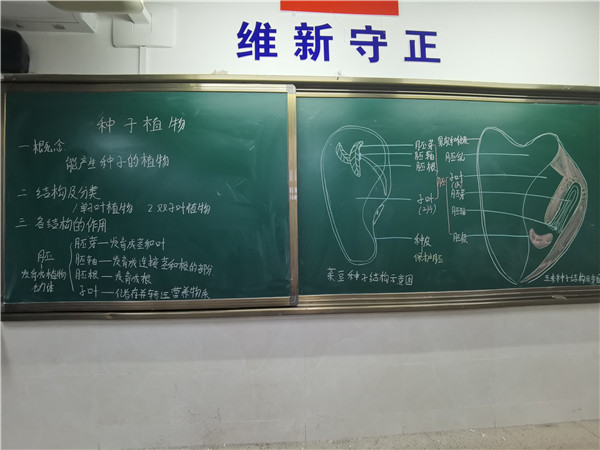 维新守正
种子植物
一 概念
能产生种子的植物
二 结构及分类
1.单子叶植物 2.双子叶植物
三 各结构的作用
胚
发育成植物
幼体
胚芽—发育成茎和叶
胚轴—发育成连接茎和根的部分
胚根—发育成根
子叶—储存并转运营养物质
胚芽
胚轴
胚根
胚
子叶
(2片)
种皮
保护胚
菜豆种子结构示意图
果皮和种皮
胚乳
子叶
胚芽
胚轴
胚根
玉米种子结构示意图